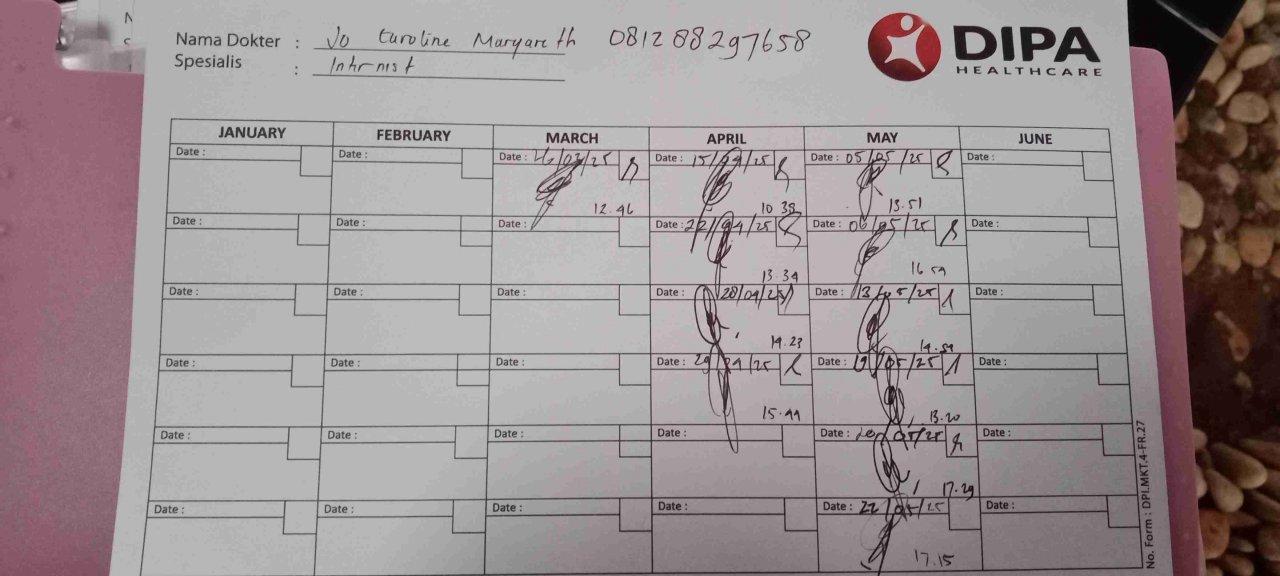 Nama Dokter : Jo Caroline Margareth 081288297658
Spesialis : Internist
DIPA
HEALTHCARE
JANUARY FEBRUARY MARCH APRIL MAY JUNE
Date : Date : Date : 26/03/25 Date : 15/04/25 Date : 05/05/25 Date :
12.46 10.38 13.51
Date : Date : Date : Date : 22/04/25 Date : 06/05/25 Date :
13.34 16.59
Date : Date : Date : Date : 28/04/25 Date : 13/05/25 Date :
14.23 14.59
Date : Date : Date : Date : 29/04/25 Date : 19/05/25 Date :
15.44 13.20
Date : Date : Date : Date : Date : 20/05/25 Date :
17.29
Date : Date : Date : Date : Date : 22/05/25 Date :
17.15
No. Form : DPI.MKT.4-FR.27